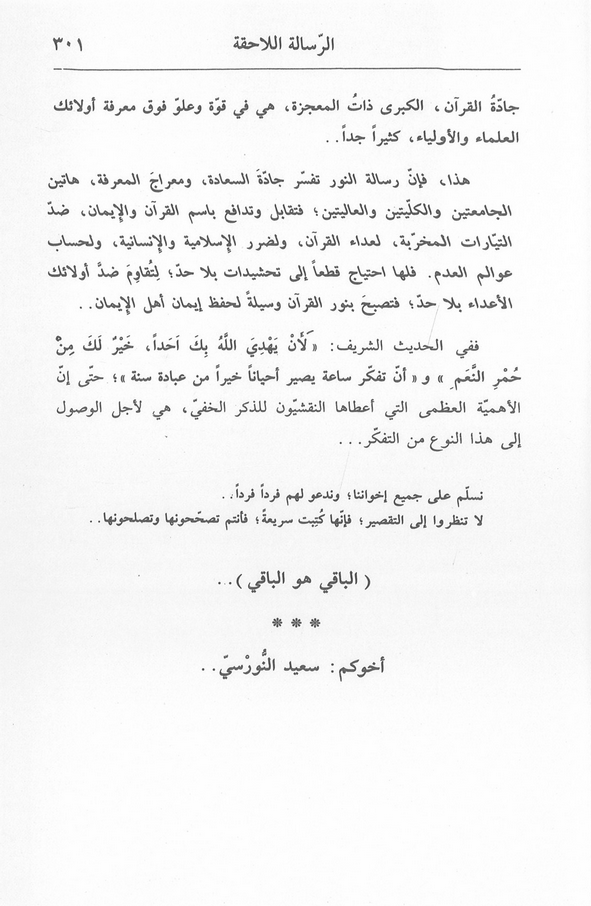 الرّسالة اللاحقة ٣٠١
جادّةُ القرآن، الكبرى ذاتُ المعجزة، هي في قوّة وعلوّ فوق معرفة أولائك
العلماء والأولياء، كثيراً جداً..
هذا، فإنّ رسالة النور تفسّر جادّةَ السعادة، ومعراجَ المعرفة، هاتين
الجامعتين والكلّيتين والعاليتين؛ فتقابل وتدافع باسم القرآن والإيمان، ضدّ
التيّارات المخربّة، لعداء القرآن، ولضرر الإسلامية والإنسانية، ولحساب
عوالم العدم. فلها احتياج قطعاً إلى تحشيدات بلا حدّ؛ لِتُقاوِمَ ضدَّ أولائك
الأعداء بلا حدّ؛ فتصبحَ بنور القرآن وسيلةً لحفظ إيمان أهل الإيمان..
ففي الحديث الشريف: «لَأَنْ يَهْدِيَ اللَّهُ بِكَ اَحَداً، خَيْرٌ لَكَ مِنْ
حُمْرِ النَّعَمِ» و«أنّ تفكّر ساعة يصير أحياناً خيراً من عبادة سنة»؛ حتّى إنّ
الأهميّة العظمى التي أعطاها النقشيّون للذكر الخفيّ، هي لأجل الوصول
إلى هذا النوع من التفكّر...
نسلّم على جميع إخواننا؛ وندعو لهم فرداً فرداً..
لا تنظروا إلى التقصير؛ فإنّها كُتِبت سريعةً؛ فأنتم تصحّحونها وتصلحونها..
( الباقي هو الباقي )..
* * *
أخوكم: سعيد النُّورْسيّ..